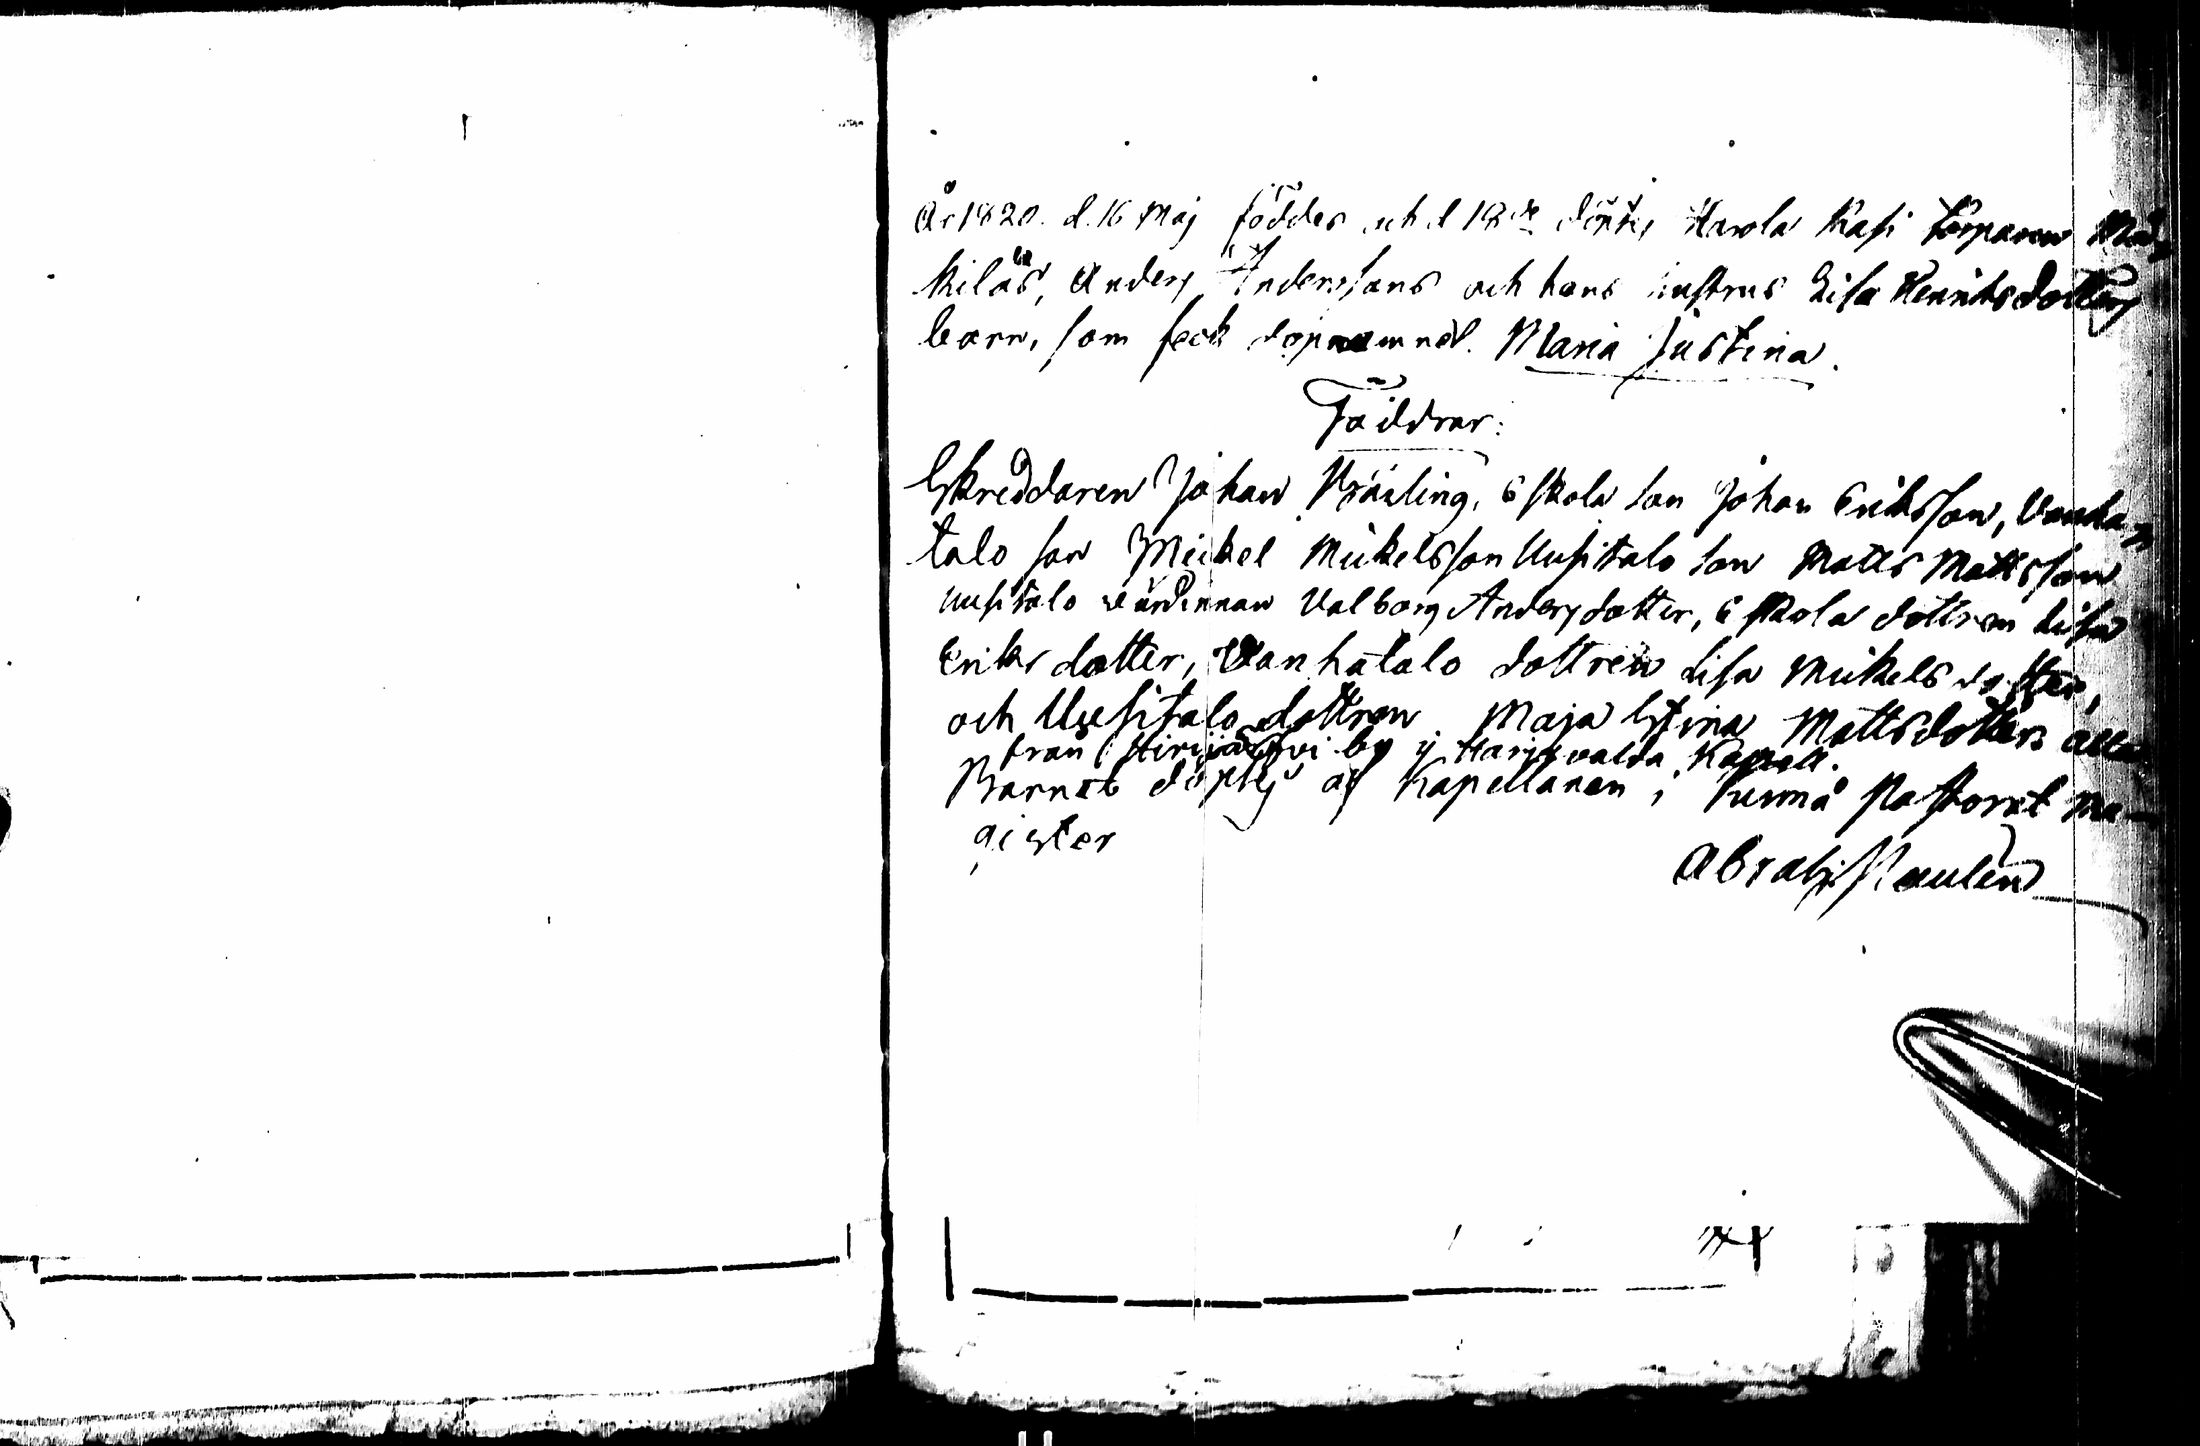 År 1820. d. 16 Maj föddes och d 18de döptes Harola Rasi Torparen Mä-
kiläs, Anders Anderssons och hans hustrus Lisa Henriksdotters
barn, som feck dopnamnet. Maria Justina.
Faddrar:
Skreddaren Johan Bräiling, Eskola son Johan Eriksson, Vanha-
talo son Mickel Mickelsson Uusitalo son Matts Mattsson
Uusitalo värdinnan Valborg Andersdotter, Eskola dottren Lisa
Eriks dotter, Vanhatalo dottren Lisa Mickelsdotter,
och Uusitalo dottren Maja Stina Mattsdotter alla
från Hirvijärvi by i Harjavalda Kapell.
Barnet döptes af Kapellanen i Kumå Pastorat Ma-
gister
Abrah: Paulin